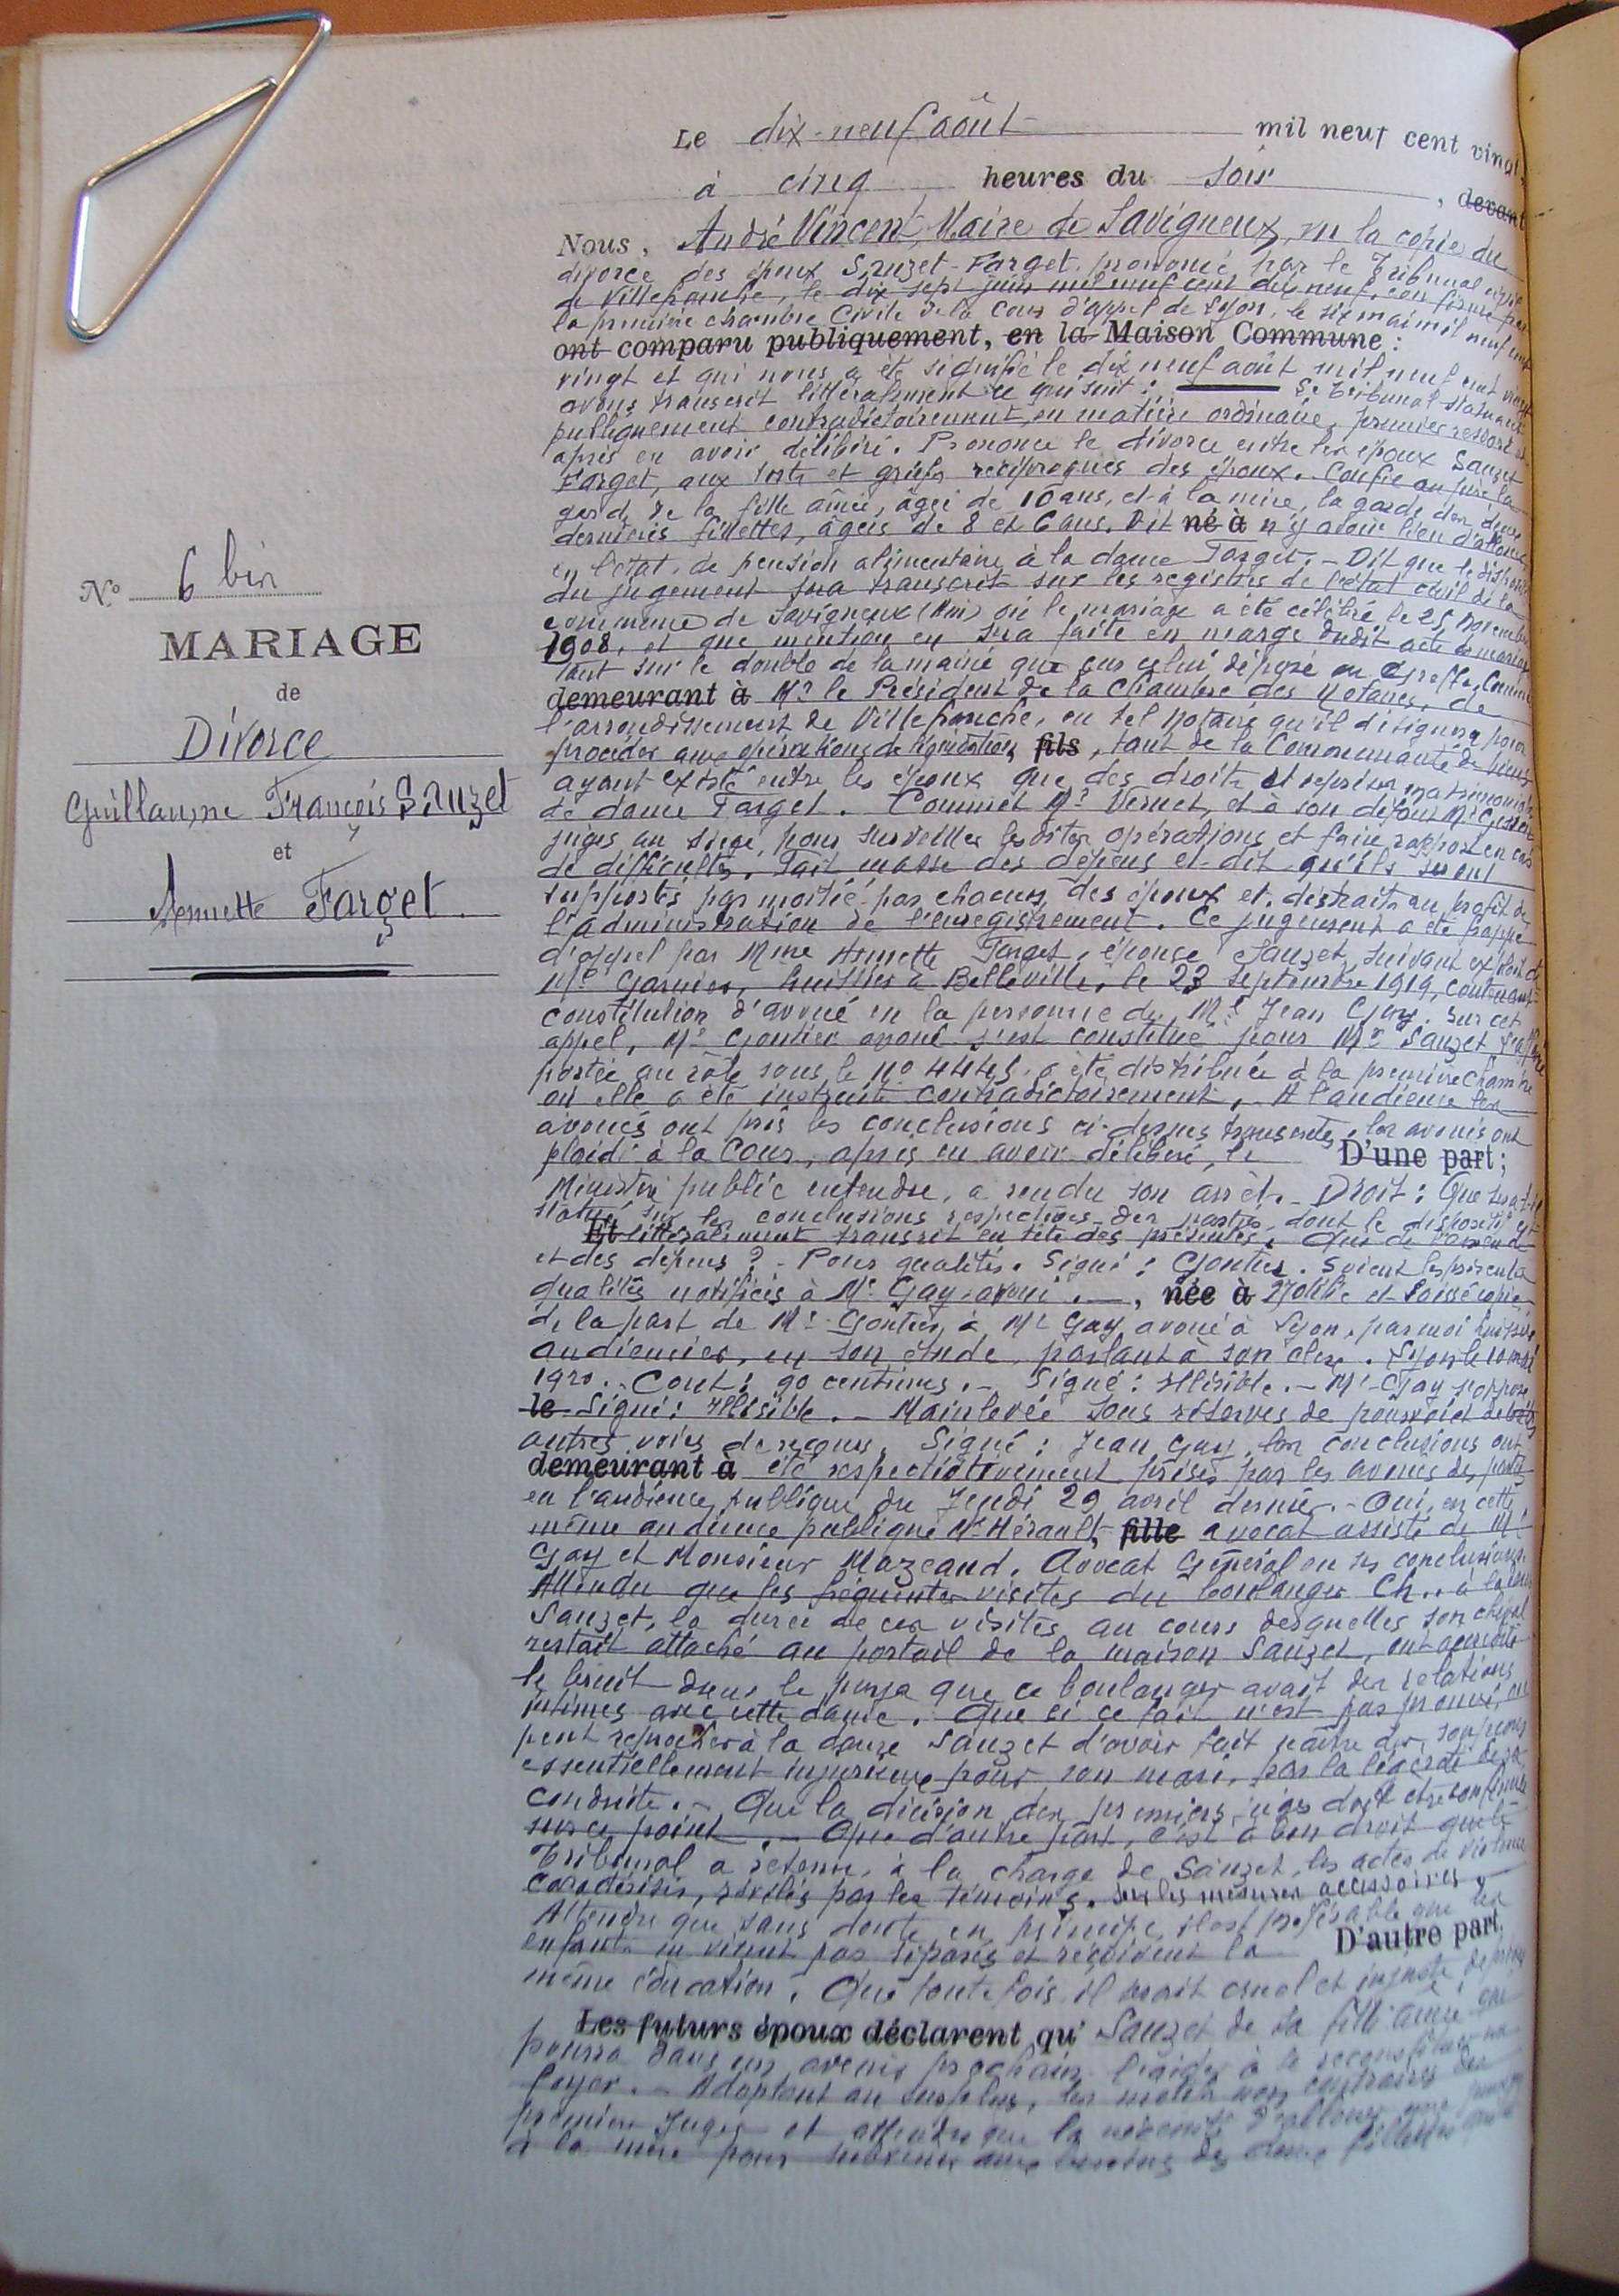 Le dix-neuf août mil neuf cent vingt,
à cinq heures du soir, devant
Nous, André Vincent, Maire de Savigneux, vu la copie du
divorce des époux Sauzet-Farget, prononcé par le Tribunal civil
de Villefranche, le dix sept juin mil neuf cent dix neuf, confirmé par
la première chambre Civile de la Cour d'appel de Lyon, le six mai mil neuf cent
ont comparu publiquement, en la Maison Commune :
vingt et qui nous a été signifié le dix neuf août mil neuf cent vingt
avons transcrit littéralement ce qui suit : Le Tribunal statuant
publiquement contradictoirement, en matière ordinaire, premier ressort
après en avoir délibéré. Prononce le divorce entre les époux Sauzet
Farget, aux torts et griefs réciproques des époux. Confie au père la
garde de la fille aînée, âgée de 10 ans, et à la mère, la garde des deux
dernières fillettes, âgées de 8 et 6 ans. Dit né à n'y avoir lieu d'allouer
en l'état, de pension alimentaire à la dame Farget. - Dit que le dispositif
du jugement sera transcrit sur les registres de l'état civil de la
commune de Savigneux (Ain) où le mariage a été célébré le 25 Novembre
1908, et que mention en sera faite en marge dudit acte de mariage
tant sur le double de la mairie que sur celui déposé au greffe. Commet
demeurant à Mr le Président de la Chambre des Notaires, de
l'arrondissement de Villefranche, ou tel Notaire qu'il désignera pour
procéder aux opérations de liquidation, fils, tant de la Communauté de biens
ayant existé entre les époux que des droits et reprises matrimoniales
de dame Farget. Commet Mr Vernet, et à son défaut Mr
juges au siège, pour surveiller lesdites opérations et faire rapport en cas
de difficultés. Fait masse des dépens et dit qu'ils seront
supportés par moitié par chacun des époux et distraits au profit de
l'administration de l'enregistrement. Ce jugement a été frappé
d'appel par Mme Annette Farget, épouse Sauzet, suivant exploit de
Me Garnier, huissier à Belleville, le 23 septembre 1919, contenant
constitution d'avoué en la personne de Me Jean Gay. Sur cet
appel, Me Gontier avoué s'est constitué pour Mr Sauzet. L'affaire
portée au rôle sous le No 4445, a été distribuée à la première Chambre
où elle a été instruite contradictoirement, - A l'audience les
avoués ont pris les conclusions ci-dessus transcrites, les avoués ont
plaidé à la Cour, après en avoir délibéré, le D'une part ;
Ministère public entendu, a rendu son arrêt. - Droit : Que sera-t-il
statué sur les conclusions respectives des parties dont le dispositif est
Et littéralement transcrit en tête des présentes. Quid de l'amende
et des dépens ? - Pour qualités. Signé : Gontier. Soient les présentes
qualités notifiées à Me Gay, avoué. —, née à Notifié et laissé copie
de la part de Me Gontier, à Me Gay avoué à Lyon, par moi huissier
audiencier, en son étude, parlant à son clerc. Lyon le 10 mai
1920. - Cout : 90 centimes. - Signé : Illisible. - Me Gay s'oppose
le Signé : Illisible. - Mainlevée sous réserves de pourvoi et de toutes
autres voies de recours. Signé : Jean Gay. Les conclusions ont
demeurant à été respectivement prises par les avoués des parties
en l'audience publique du Jeudi 29 avril dernier. - Oui, en cette
même audience publique Me Hérault, fille avocat assisté de Me
Gay et Monsieur Mazeaud, Avocat Général en ses conclusions.
Attendu que les fréquentes visites du boulanger Ch... à la dame
Sauzet, la durée de ces visites au cours desquelles son cheval
restait attaché au portail de la maison Sauzet, ont accrédité
le bruit dans le pays que ce boulanger avait des relations
intimes avec cette dame. Que si ce fait n'est pas prouvé, on
peut reprocher à la dame Sauzet d'avoir fait naître des soupçons
essentiellement injurieux pour son mari, par la légèreté de sa
conduite. - Que la décision des premiers juges doit être confirmée
sur ce point. - Que d'autre part, c'est à bon droit que le
Tribunal a retenu, à la charge de Sauzet, les actes de violence
caractérisés, révélés par les témoins. Sur les mesures accessoires
Attendu que sans doute en principe, il est préférable que les
enfants ne vivent pas séparés et reçoivent la D'autre part,
même éducation. Que toutefois, il serait cruel et injuste de priver
Les futurs époux déclarent qu' Sauzet de sa fille aînée qui
pourra dans un avenir prochain l'aider à se reconstituer un
foyer. - Adoptant au surplus, les motifs non contraires des
premiers Juges et attendu que la nécessité d'allouer une pension
à la mère pour subvenir aux besoins des deux fillettes
No 6 bis
MARIAGE
de
Divorce
Guillaume François Sauzet
et
Annette Farget.